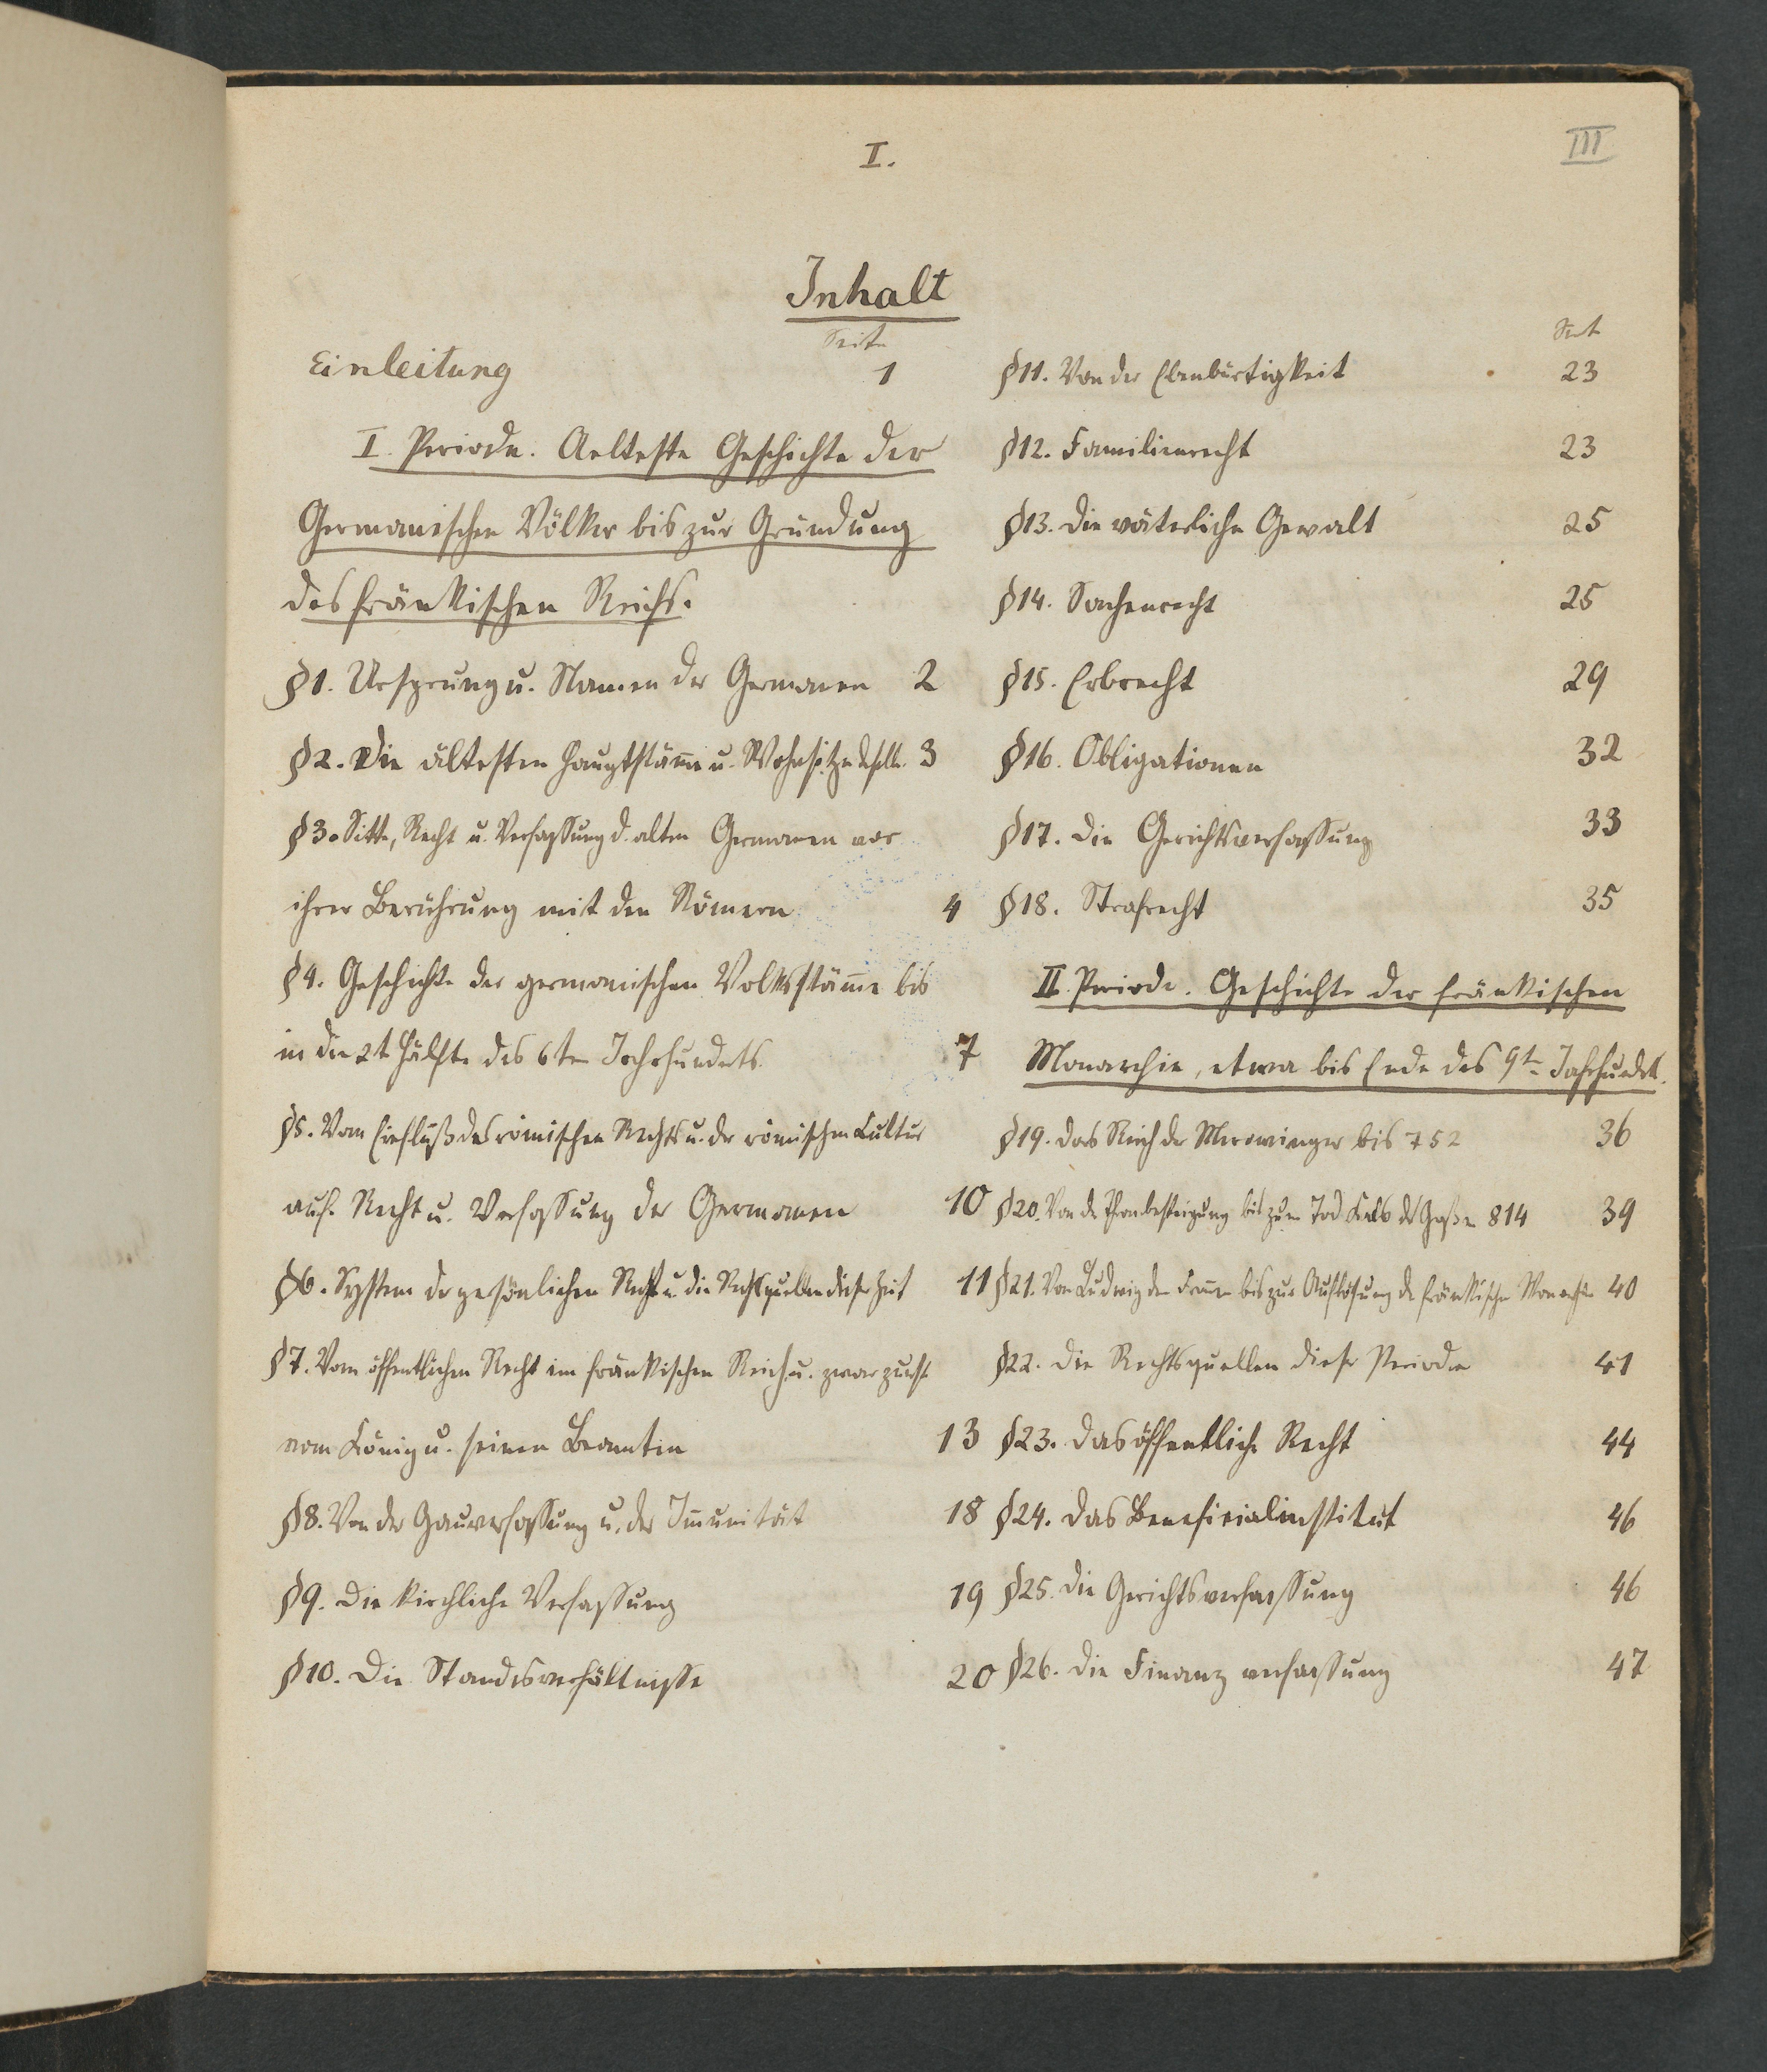 I.
III
Inhalt
Seite
Einleitung 1
I. Periode. Aelteste Geschichte der
Germanischen Völker bis zur Gründung
des fränkischen Reichs.
§1. Ursprung u. Namen der Germanen 2
§2. Die ältesten Hauptstäm̄e u. Wohnsitze dselb. 3
§3. Sitte, Recht u. Verfassung d. alten Germanen vor
ihrer Berührung mit den Römern 4
§4. Geschichte der germanischen Volksstäm̄e bis
in die 2t Hälfte des 6ten Jahrhunderts. 7
§5. Vom Einfluß des römischen Rechts u. der römischen Cultur
auf Recht u. Verfassung der Germanen 10
§6. System der persönlichen Rechte u. die Rechtsquellen dieser Zeit 11
§7. Vom öffentlichen Recht im fränkischen Reich u. zwar zuerst
vom König u. seinen Beamten 13
§8. Von der Gauverfassung u. der Im̄unität 18
§9. Die kirchliche Verfassung 19
§10. Die Standesverhältnisse 20
Seit
§11. Von der Ebenbürtigkeit 23
§12. Familienrecht 23
§13. Die väterliche Gewalt 25
§14. Sachenrecht 25
§15. Erbrecht 29
§16. Obligationen 32
§17. Die Gerichtsverfassung 33
§18. Strafrecht 35
II. Periode. Geschichte der fränkischen
Monarchie, etwa bis Ende des 9tn Jahrhundrt.
§19. Das Reich der Merowinger bis 752 36
§20. Von der Thronbesteigung bis zum Tod Karls des Großen 814 39
§21. Von Ludwig dem From̄en bis zur Auflösung der fränkischen Monarchie 40
§22. Die Rechtsquellen dieser Periode 41
§23. Das öffentliche Recht 44
§24. Das Beneficialinstitut 46
§25. Die Gerichtsverfassung 46
§26. Die Finanzverfassung 47